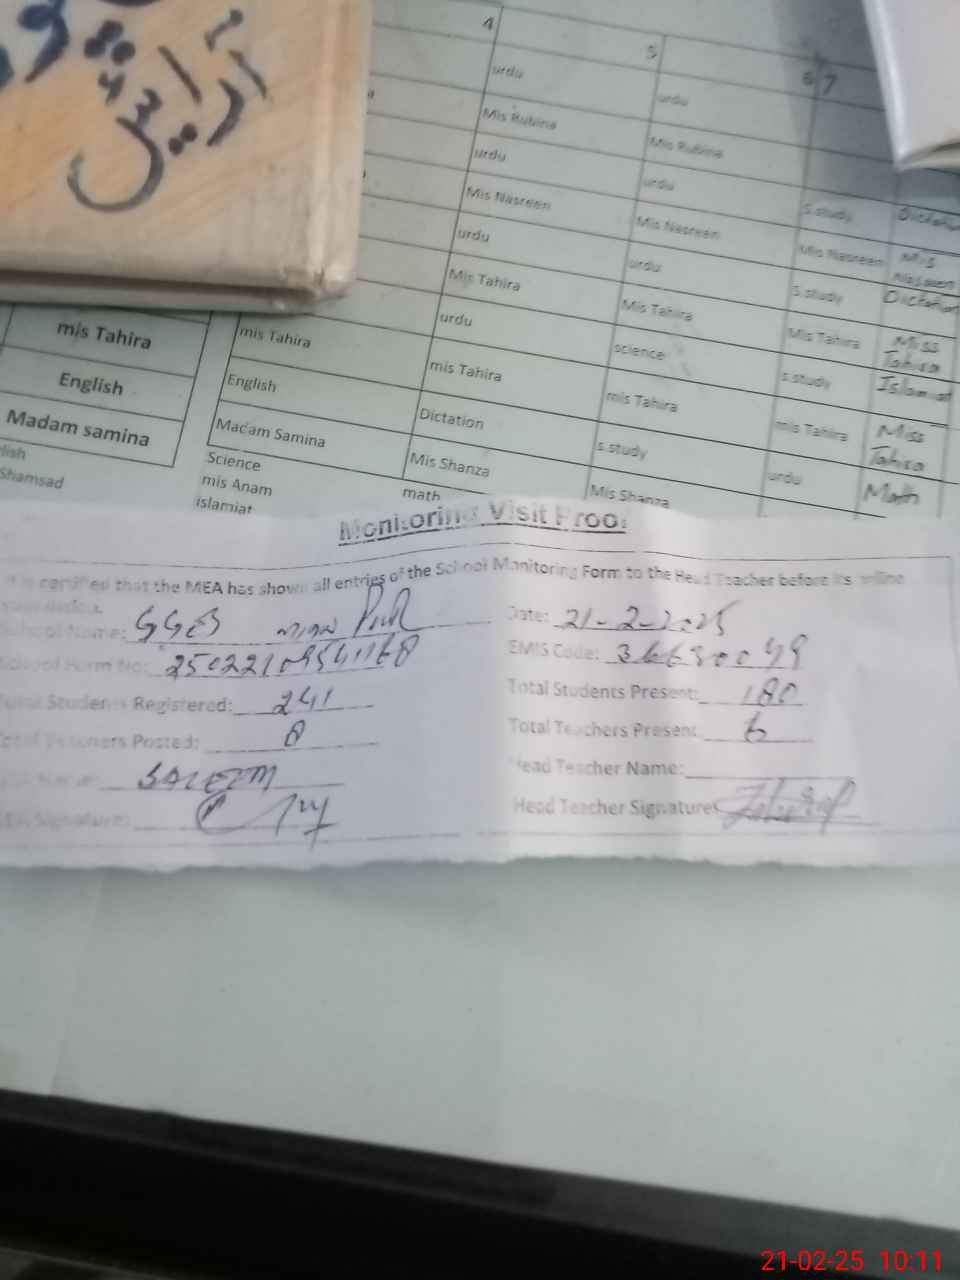 آرائش
4
5
6 7
urdu
urdu
Mis Rubina
Mis Rubina
urdu
urdu
S.study
Mis Nasreen
Mis Nasreen
Mis Nasreen
Mis
Nasreen
urdu
urdu
S.study
Dictation
Mis Tahira
Mis Tahira
Mis Tahira
Miss
Tahira
urdu
science
s.study
Islamiat
mis Tahira
mis Tahira
mis Tahira
mis Tahira
mis Tahira
Miss
Tahira
English
English
Dictation
s.study
urdu
Math
Madam samina
Madam Samina
Mis Shanza
Mis Shanza
lish
Science
math
Shamsad
mis Anam
islamiat
Monitoring Visit Proof
It is certified that the MEA has shown all entries of the School Monitoring Form to the Head Teacher before its online
School Name: GGES
Date: 21-2-2025
School Form No: 25022109541168
EMIS Code:
Total Students Registered: 241
Total Students Present: 180
Total Teachers Posted: 8
Total Teachers Present: 6
SALEEM
Head Teacher Name:
Signature:
Head Teacher Signature:
21-02-25 10:11